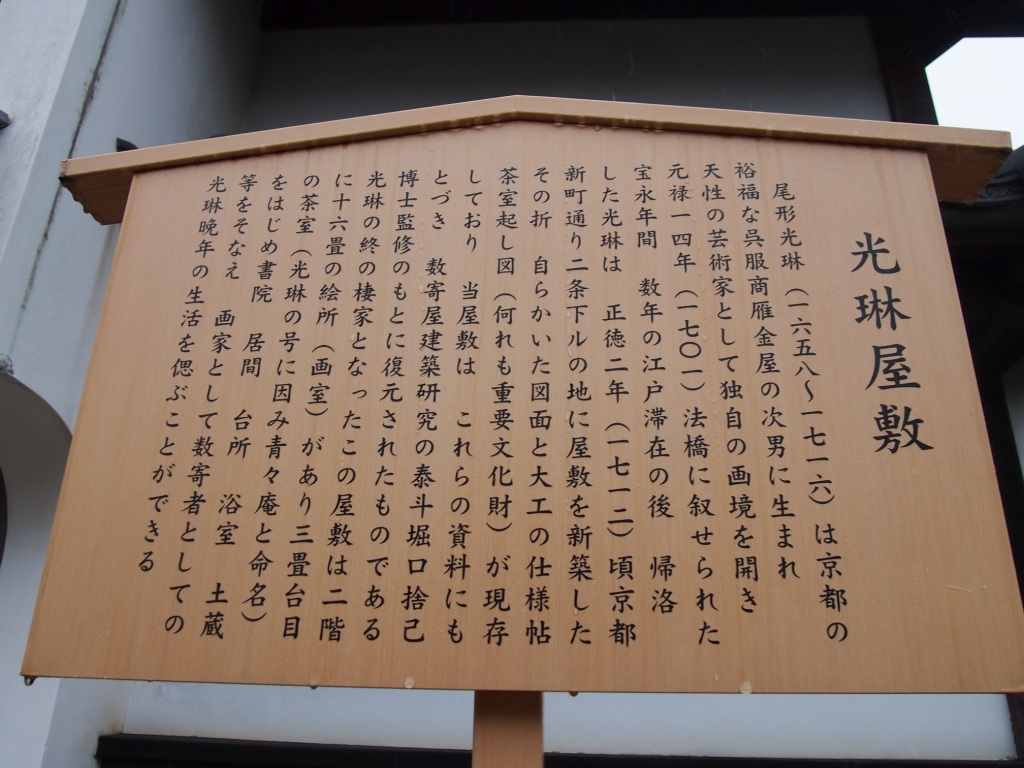 光琳屋敷
尾形光琳（一六五八〜一七一六）は京都の
裕福な呉服商雁金屋の次男に生まれ
天性の芸術家として独自の画境を開き
元禄一四年（一七〇一）法橋に叙せられた
宝永年間　数年の江戸滞在の後　帰洛
した光琳は　正徳二年（一七一二）頃京都
新町通り二条下ルの地に屋敷を新築した
その折　自らかいた図面と大工の仕様帖
茶室起し図（何れも重要文化財）が現存
しており　当屋敷は　これらの資料にも
とづき　数寄屋建築研究の泰斗堀口捨己
博士監修のもとに復元されたものである
光琳の終の棲家となったこの屋敷は二階
に十六畳の絵所（画室）があり三畳台目
の茶室（光琳の号に因み青々庵と命名）
をはじめ書院　居間　台所　浴室　土蔵
等をそなえ　画家として数寄者としての
光琳晩年の生活を偲ぶことができる